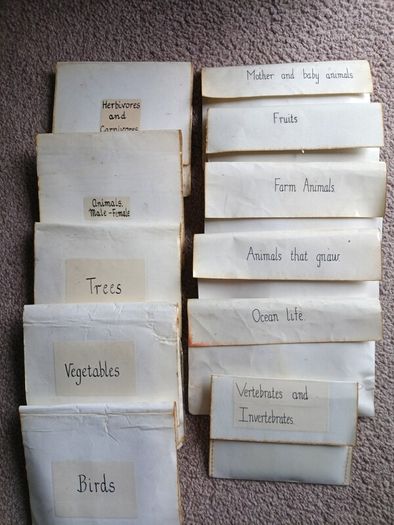 Herbivores
and
Carnivores
Animals.
Male-Female
Trees
Vegetables
Birds
Mother and baby animals
Fruits
Farm Animals
Animals that gnaw
Ocean life
Vertebrates and
Invertebrates